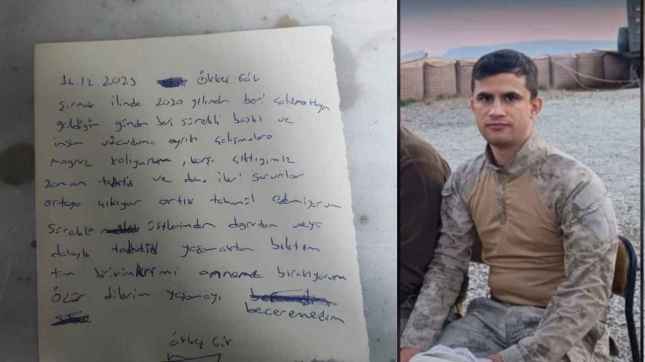 12.12.2023 Ökkeş Gür
Şırnak ilinde 2020 yılından beri çalışmaktayım
geldiğim günden beri sürekli baskı ve
insan vücuduna aykırı çalışmalara
maruz kalıyorum, karşı çıktığımız
zaman tehdit ve daha ileri sorunlar
ortaya çıkıyor artık tahmül edemiyorum
Sürekli üstlerimden doğrudan veya
dolaylı tehdit yaşamaktan bıktım
tüm birikimlerimi anneme bırakıyorum
Özür dilerim yaşamayı
beceremedim